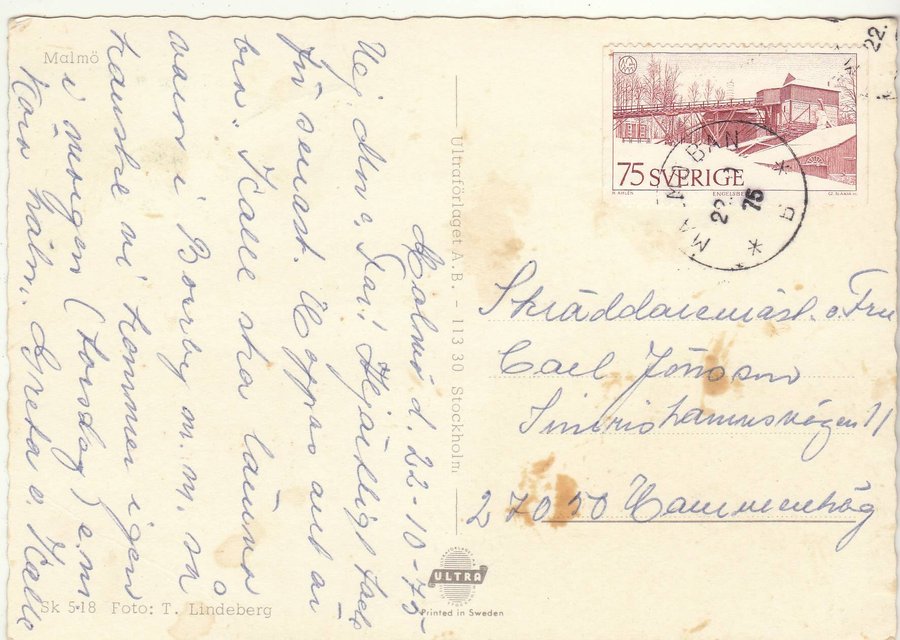 Malmö
Malmö d. 22-10-75
Hej! Hjärtligt tack
för senast. Hoppas allt är
bra. Kalle ska lämna
varor i Borrby m.m. så
kanske vi kommer igen
i morgon (torsdag) e.m
Kära häln. Greta o. Kalle
Sk 5-18 Foto: T. Lindeberg
Ultraförlaget A.B. - 113 30 Stockholm
ULTRA
Printed in Sweden
75 SVERIGE
ENGELSBERG
MALMÖ BAN
22
75
22.
Skräddaremäst. o. Fru
Carl Jönsson
Simrishamnsvägen 11
270 50 Hammenhög